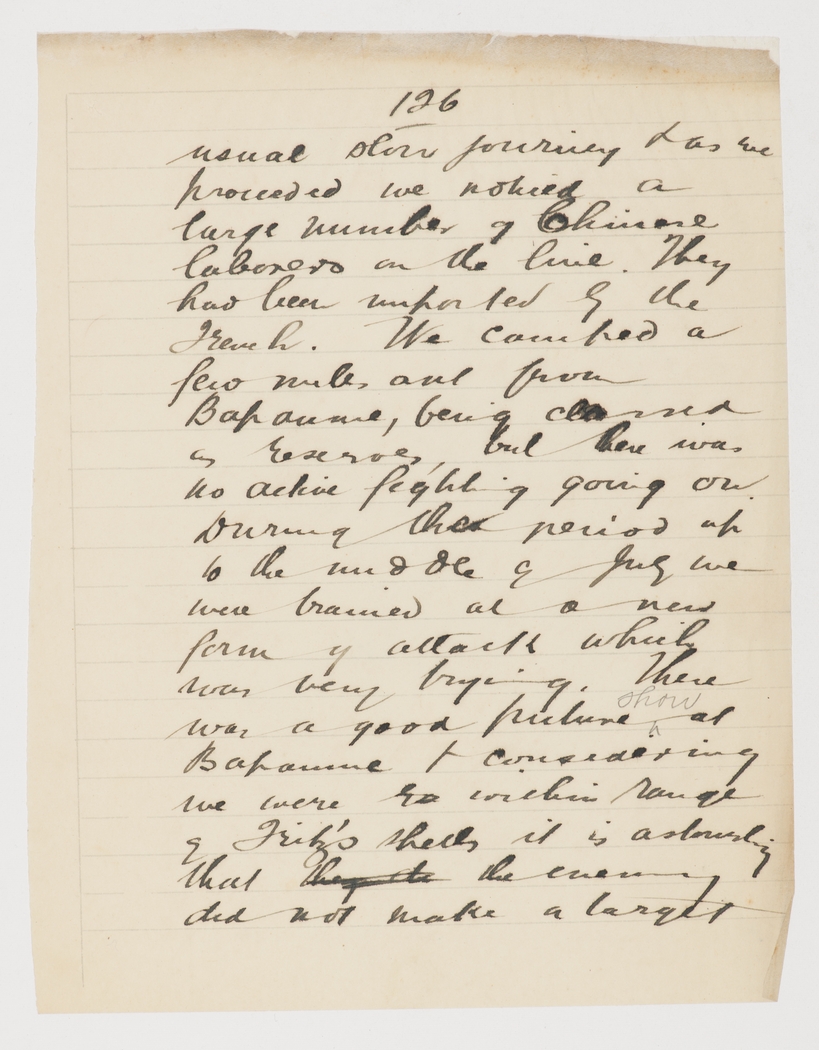 126
usual slow journey & as we
proceeded we noticed a
large number of Chinese
laborers on the line. They
had been imported by the
French. We camped a
few miles out from
Bapaume, being classed
as reserves, but there was
no active fighting going on.
During the period up
to the middle of July we
were trained at a new
form of attack which
was very trying. There
show
was a good picture ^ at
Bapaume & considering
we were so within range
of Fritz's shells it is astonishing
that they the enemy
did not make a target